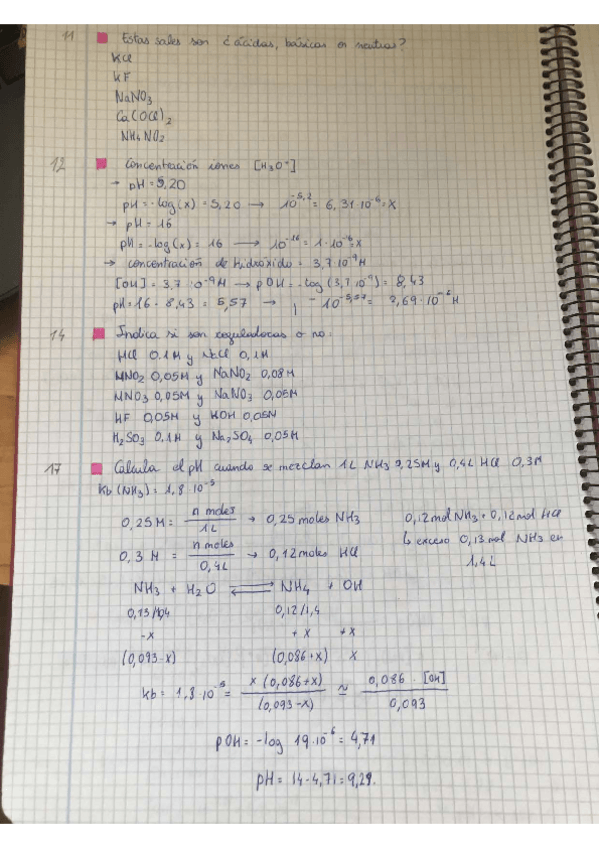 11 Estas sales son ¿ácidas, básicas o neutras?
KCl
KF
NaNO3
Ca(OCl)2
NH4NO2
12 Concentración iones [H3O+]
→ pH = 5,20
pH = -log(x) = 5,20 → 10^-5,2 = 6,31·10^-6 = x
→ pH = 16
pH = -log(x) = 16 → 10^-16 = 1·10^-6 = x
→ concentración de hidróxido = 3,7·10^-9 M
[OH] = 3,7·10^-9 M → pOH = -log(3,7·10^-9) = 8,43
pH = 16 - 8,43 = 5,57 → 10^-5,57 = 2,69·10^-6 M
14 Indica si son reguladoras o no:
HCl 0.1M y NaCl 0,1M
HNO2 0,05M y NaNO2 0,08M
HNO3 0,05M y NaNO3 0,05M
HF 0,05M y KOH 0,05M
H2SO3 0,1M y Na2SO4 0,05M
17 Calcula el pH cuando se mezclan 1L NH3 0,25M y 0,4L HCl 0,3M
Kb (NH3) = 1,8·10^-5
0,25M = n moles / 1L → 0,25 moles NH3
0,12 mol NH3 + 0,12 mol HCl
↳ exceso 0,13 mol NH3 en
1,4L
0,3 M = n moles / 0,4L → 0,12 moles HCl
NH3 + H2O ⇌ NH4 + OH
0,13/1,4 0,12/1,4
-x +x +x
(0,093-x) (0,086+x) x
kb = 1,8·10^-5 = x(0,086+x) / (0,093-x) ≈ 0,086·[OH] / 0,093
pOH = -log 19·10^-6 = 4,71
pH = 14-4,71 = 9,29.